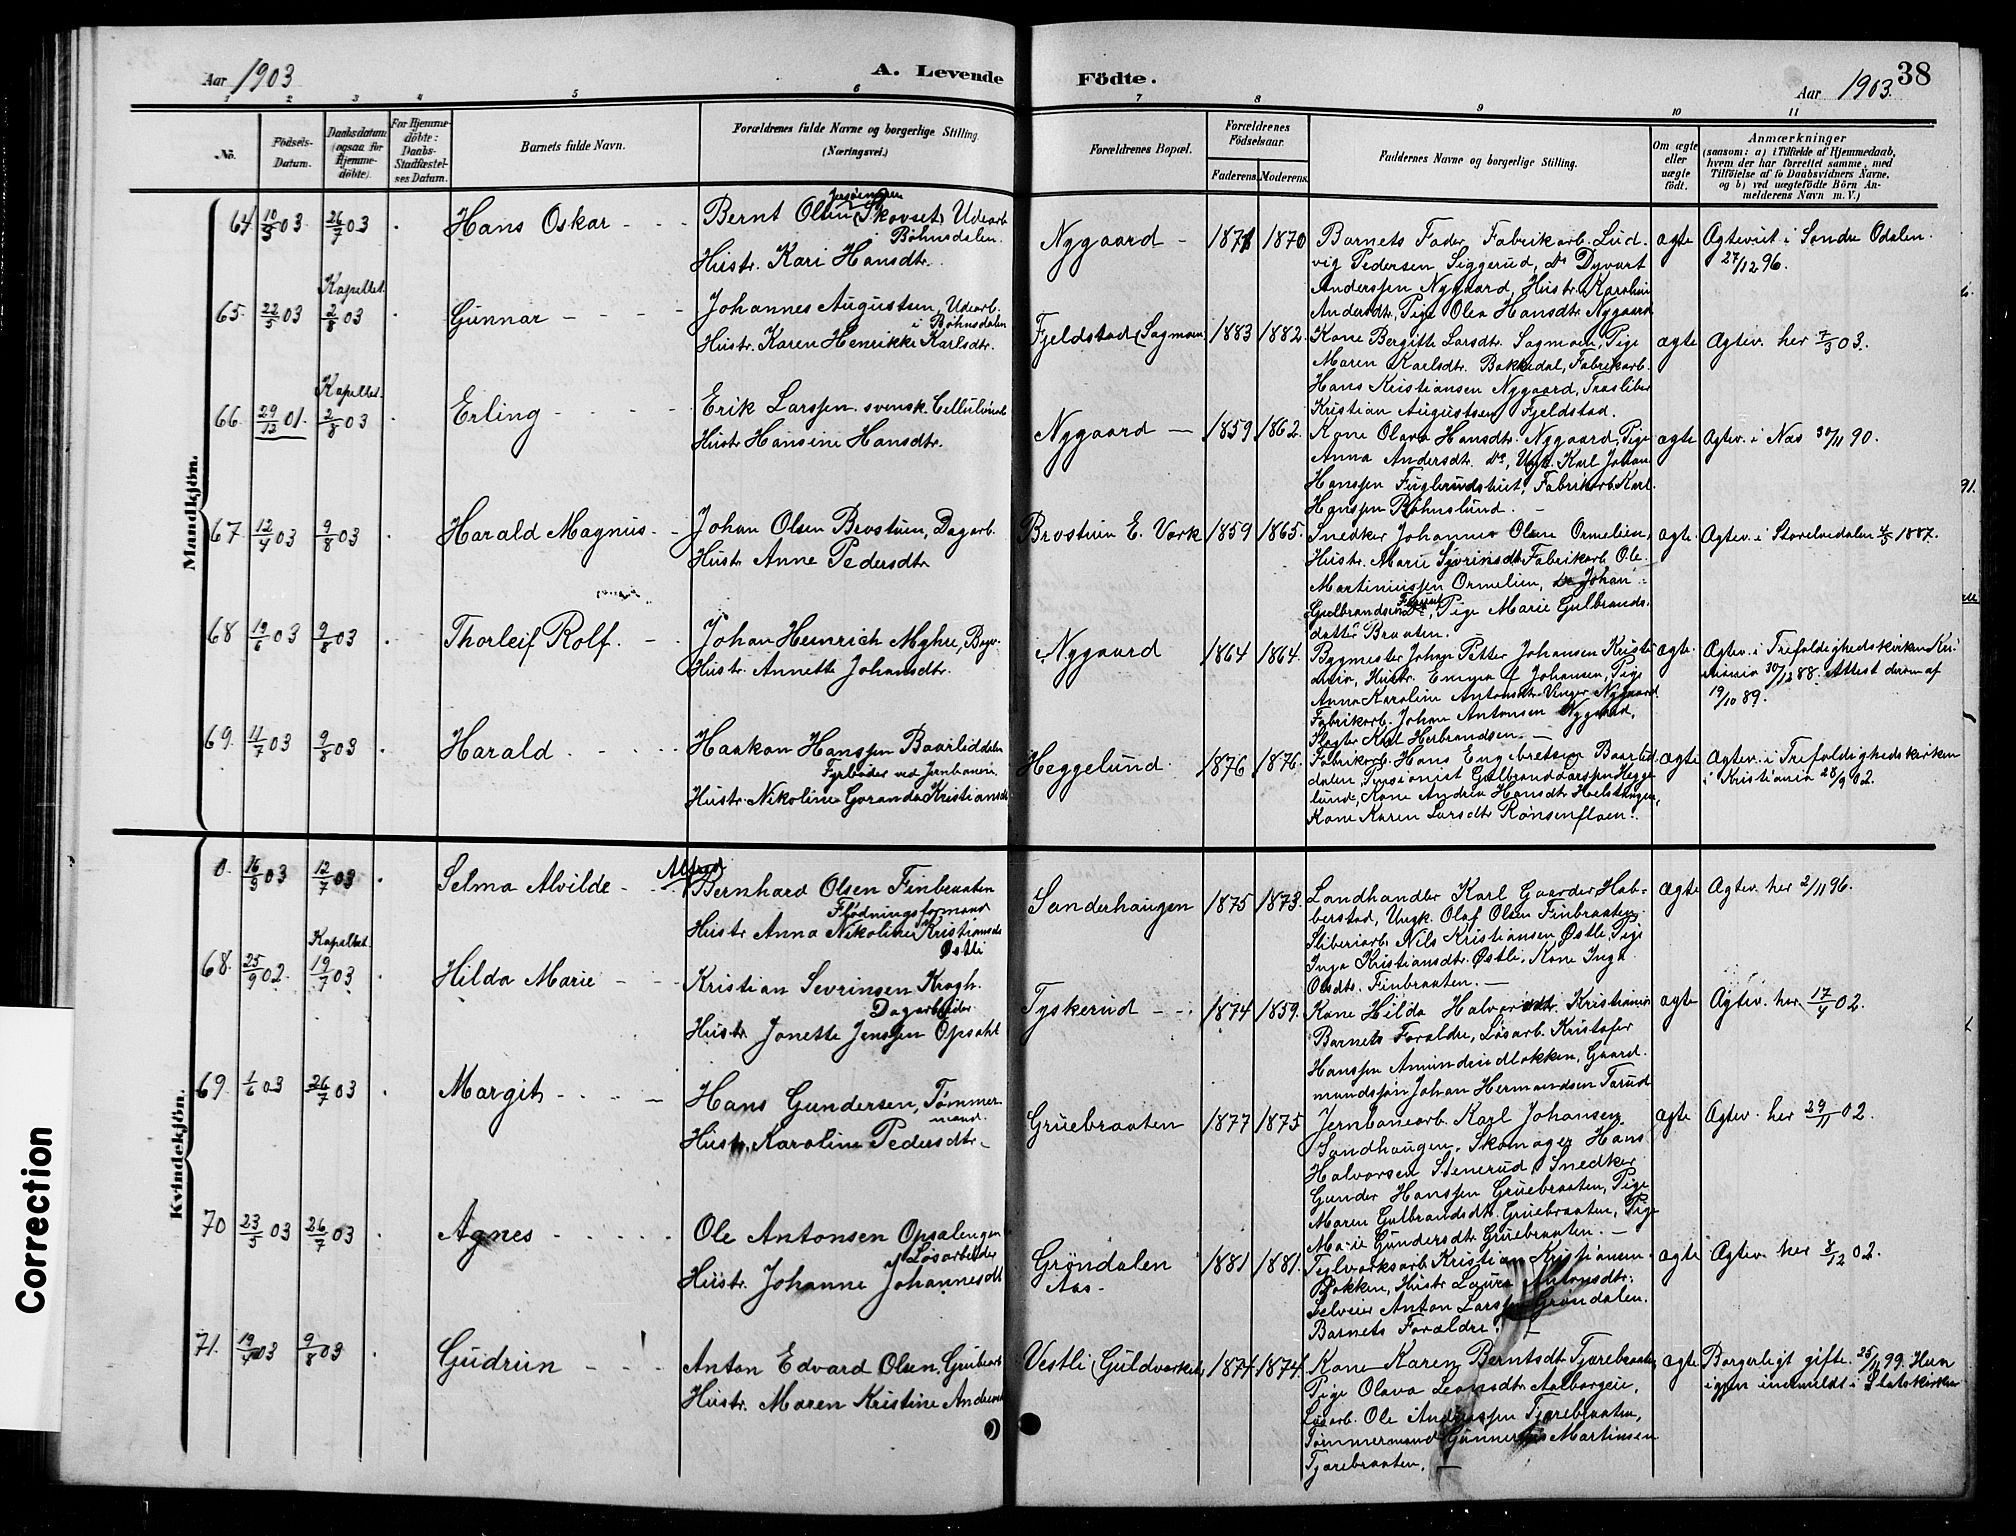 Aar 1903
A. Levende
Födte.
38
Aar 1903.
1 2 3 4 5 6 7 8 9 10 11
No.
Födsels-
Datum.
Daabsdatum
(ogsaa for
Hjemme-
döbte).
For Hjemme-
döbte:
Daabs-
Stadfæstel-
ses Datum.
Barnets fulde Navn.
Forældrenes fulde Navne og borgerlige Stilling.
(Næringsvei.)
Forældrenes Bopæl.
Forældrenes
Födselsaar.
Faderens. Moderens.
Faddernes Navne og borgerlige Stilling.
Om ægte
eller
uægte
födt.
Anmærkninger
(saasom: a) i Tilfælde af Hjemmedaab,
hvem der har forrettet samme, med
Tilföielse af to Daabsvidners Navne,
og b) ved uægtefödte Börn An-
melderens Navn m. V.)
Mandkjön.
64 10/5 03. 26/7 03 Hans Oskar
Bernt Olsen Skovset, Udearb.
i Bøhnsdalen.
Hustr. Kari Hansdtr.
Nygaard 1871 1870
Barnets Fader, Fabrikarb. Lud-
vig Pedersen Siggerud, do Dyvart
Anderssen Nygaard, Hustr. Karoline
Andersdtr, Pige Olea Hansdtr. Nygaard
ægte
Ægteviet i Søndre Odalen
27/12 96.
65. 22/5 03 Kapellet. 2/8 03 Gunnar
Johannes Augustsen, Udearb.
i Bøhnsdalen
Hustr. Karen Henrikke Karlsdtr.
Fjeldstad (Sagmoen) 1883 1882.
Kone Bergitte Larsdtr. Sagmoen, Pige
Maren Karlsdtr. Bakkedal, Fabrikarb.
Hans Kristiansen Nygaard, Træsliber
Kristian Augustsen Fjeldstad.
ægte
Ægtev. her 7/3 03.
66. 29/12 01. Kapellet. 2/8 03 Erling
Erik Larssen. svensk. Cellulosearb.
Hustr. Hansine Hansdtr.
Nygaard 1859 1862.
Kone Olava Hansdtr. Nygaard, Pige
Anna Andersdtr. do, Ungk. Karl Johan
Hanssen Fuglerudshuet, Fabrikarb. Karl
Hanssen Bøhnslund.
ægte
Ægtev. i Næs 30/11 90.
67 12/4 03 9/8 03 Harald Magnus
Johan Olsen Brostuen, Dagarb.
Hustr. Anne Pedersdtr.
Brostuen E. Værk 1859 1865.
Snedker Johannes Olsen Ormelien,
Hustr. Marie Syvrinsdtr. Fabrikarb. Ole
Martiniussen Ormelien, do Johan
Gulbrandsen, Pige Marie Gulbrands-
datter Braaten.
ægte.
Ægtev. i Storelvedalen 1887.
68 19/6 03 9/8 03 Thorleif Rolf.
Johan Heinrich Myhre,
Hustr. Annette Johansdtr.
Nygaard 1864 1864.
Bygmester Johan Petter Johansen Kristi-
ania, Hustr. Emma Johansen, Pige
Anna Karoline Antonsdtr Nygaard
Fabrikarb. Johan Antonsen Nygaard,
Karl Herbrandsen.
ægte.
Ægtev. i Trefoldighedskirken Kri-
stiania 30/12 88. Attest derom af
19/10 89.
69. 11/7 03 9/8 03 Harald
Haakon Hanssen Baarliddalen
Fyrbøder ved Jernbanen.
Hustr. Nikoline Kristiansd
Heggelund. 1876 1876.
Fabrikarb. Hans Engebretsen Baarlid-
dalen, Pensionist Gulbrand Larssen Hegge-
lund, Kone Andrea Hansdtr.
Kone Karen Larsdtr Rønsenfloen.
ægte
Ægtev. i Trefoldighedskirken
i Kristiania 28/9 02.
Kvindekjön.
16/3 03 12/7 03 Selma Alvilde
Alfred
Bernhard Olsen Finbraaten
Flødningsformand
Hustr. Anna Nikoline Kristiansd
Østli
Sanderhaugen 1875 1873.
Landhandler Karl Gaarder Hab-
berstad, Ungk. Olaf Olsen Finbraaten
Sliberiarb. Nils Kristiansen Østli, Pige
Inga Kristiansdtr. Østli, Kone Inga
Olsdtr. Finbraaten.
ægte
Ægtev. her 2/11 96.
68. 25/9 02. Kapellet. 19/7 03 Hilda Marie
Kristian Sevrinsen Krogh.
Dagarbeider
Hustr. Jonette Jenssen Opsahl
Tyskerud 1874 1859.
Kone Hilda Halvorsdtr. Kristiania
Barnets Forældre, Løsarb. Kristofer
Hanssen Amundrudløkken, Gaard-
mandssøn Johan Hermandsen Tærud
ægte
Ægtev. her 17/4 02.
69. 1/6 03 26/7 03 Margit
Hans Gundersen, Tømmer-
mand.
Hustr. Karoline Pedersdtr.
Gruebraaten 1877 1875
Jernbanearb. Karl Johansen
Sandhaugen, Skomager Hans
Halvorsen Stenerud, Snedker
Gunder Hanssen Gruebraaten, Pige
Maren Gulbrandsdtr. Gruebraaten, Pige
Marie Gundersdtr Gruebraaten.
ægte
Ægtev. her 29/11 02.
70 23/5 03 26/7 03 Agnes
Ole Antonsen Opsalengen
Løsarbeider
Hustr. Johanne Johannesdt
Grøndalen
Aas. 1881 1881.
Teglværksarb. Kristian Kristiansen
Bakken, Hustr. Laura Antonsdtr.
Selveier Anton Larssen Grøndalen.
Barnets Forældre.
ægte
Ægtev. her 8/12 02.
71. 19/4 03 9/8 03 Gudrun
Anton Edvard Olsen. Grubearb.
Hustr. Maren Kristine Andersd
Vestli (Guldværket) 1874 1874.
Kone Karen Berntsdtr Tjærebraaten,
Pige Olava Leonsdtr. Aalborgeie,
Løsarb. Ole Andreassen Tjærebraaten,
Tømmermand Gunnerius Martinsen
Tjærebraaten.
ægte
Borgerligt gifte. 25/11 99. Hun
igjen indmeldt i Statskirken
Correction